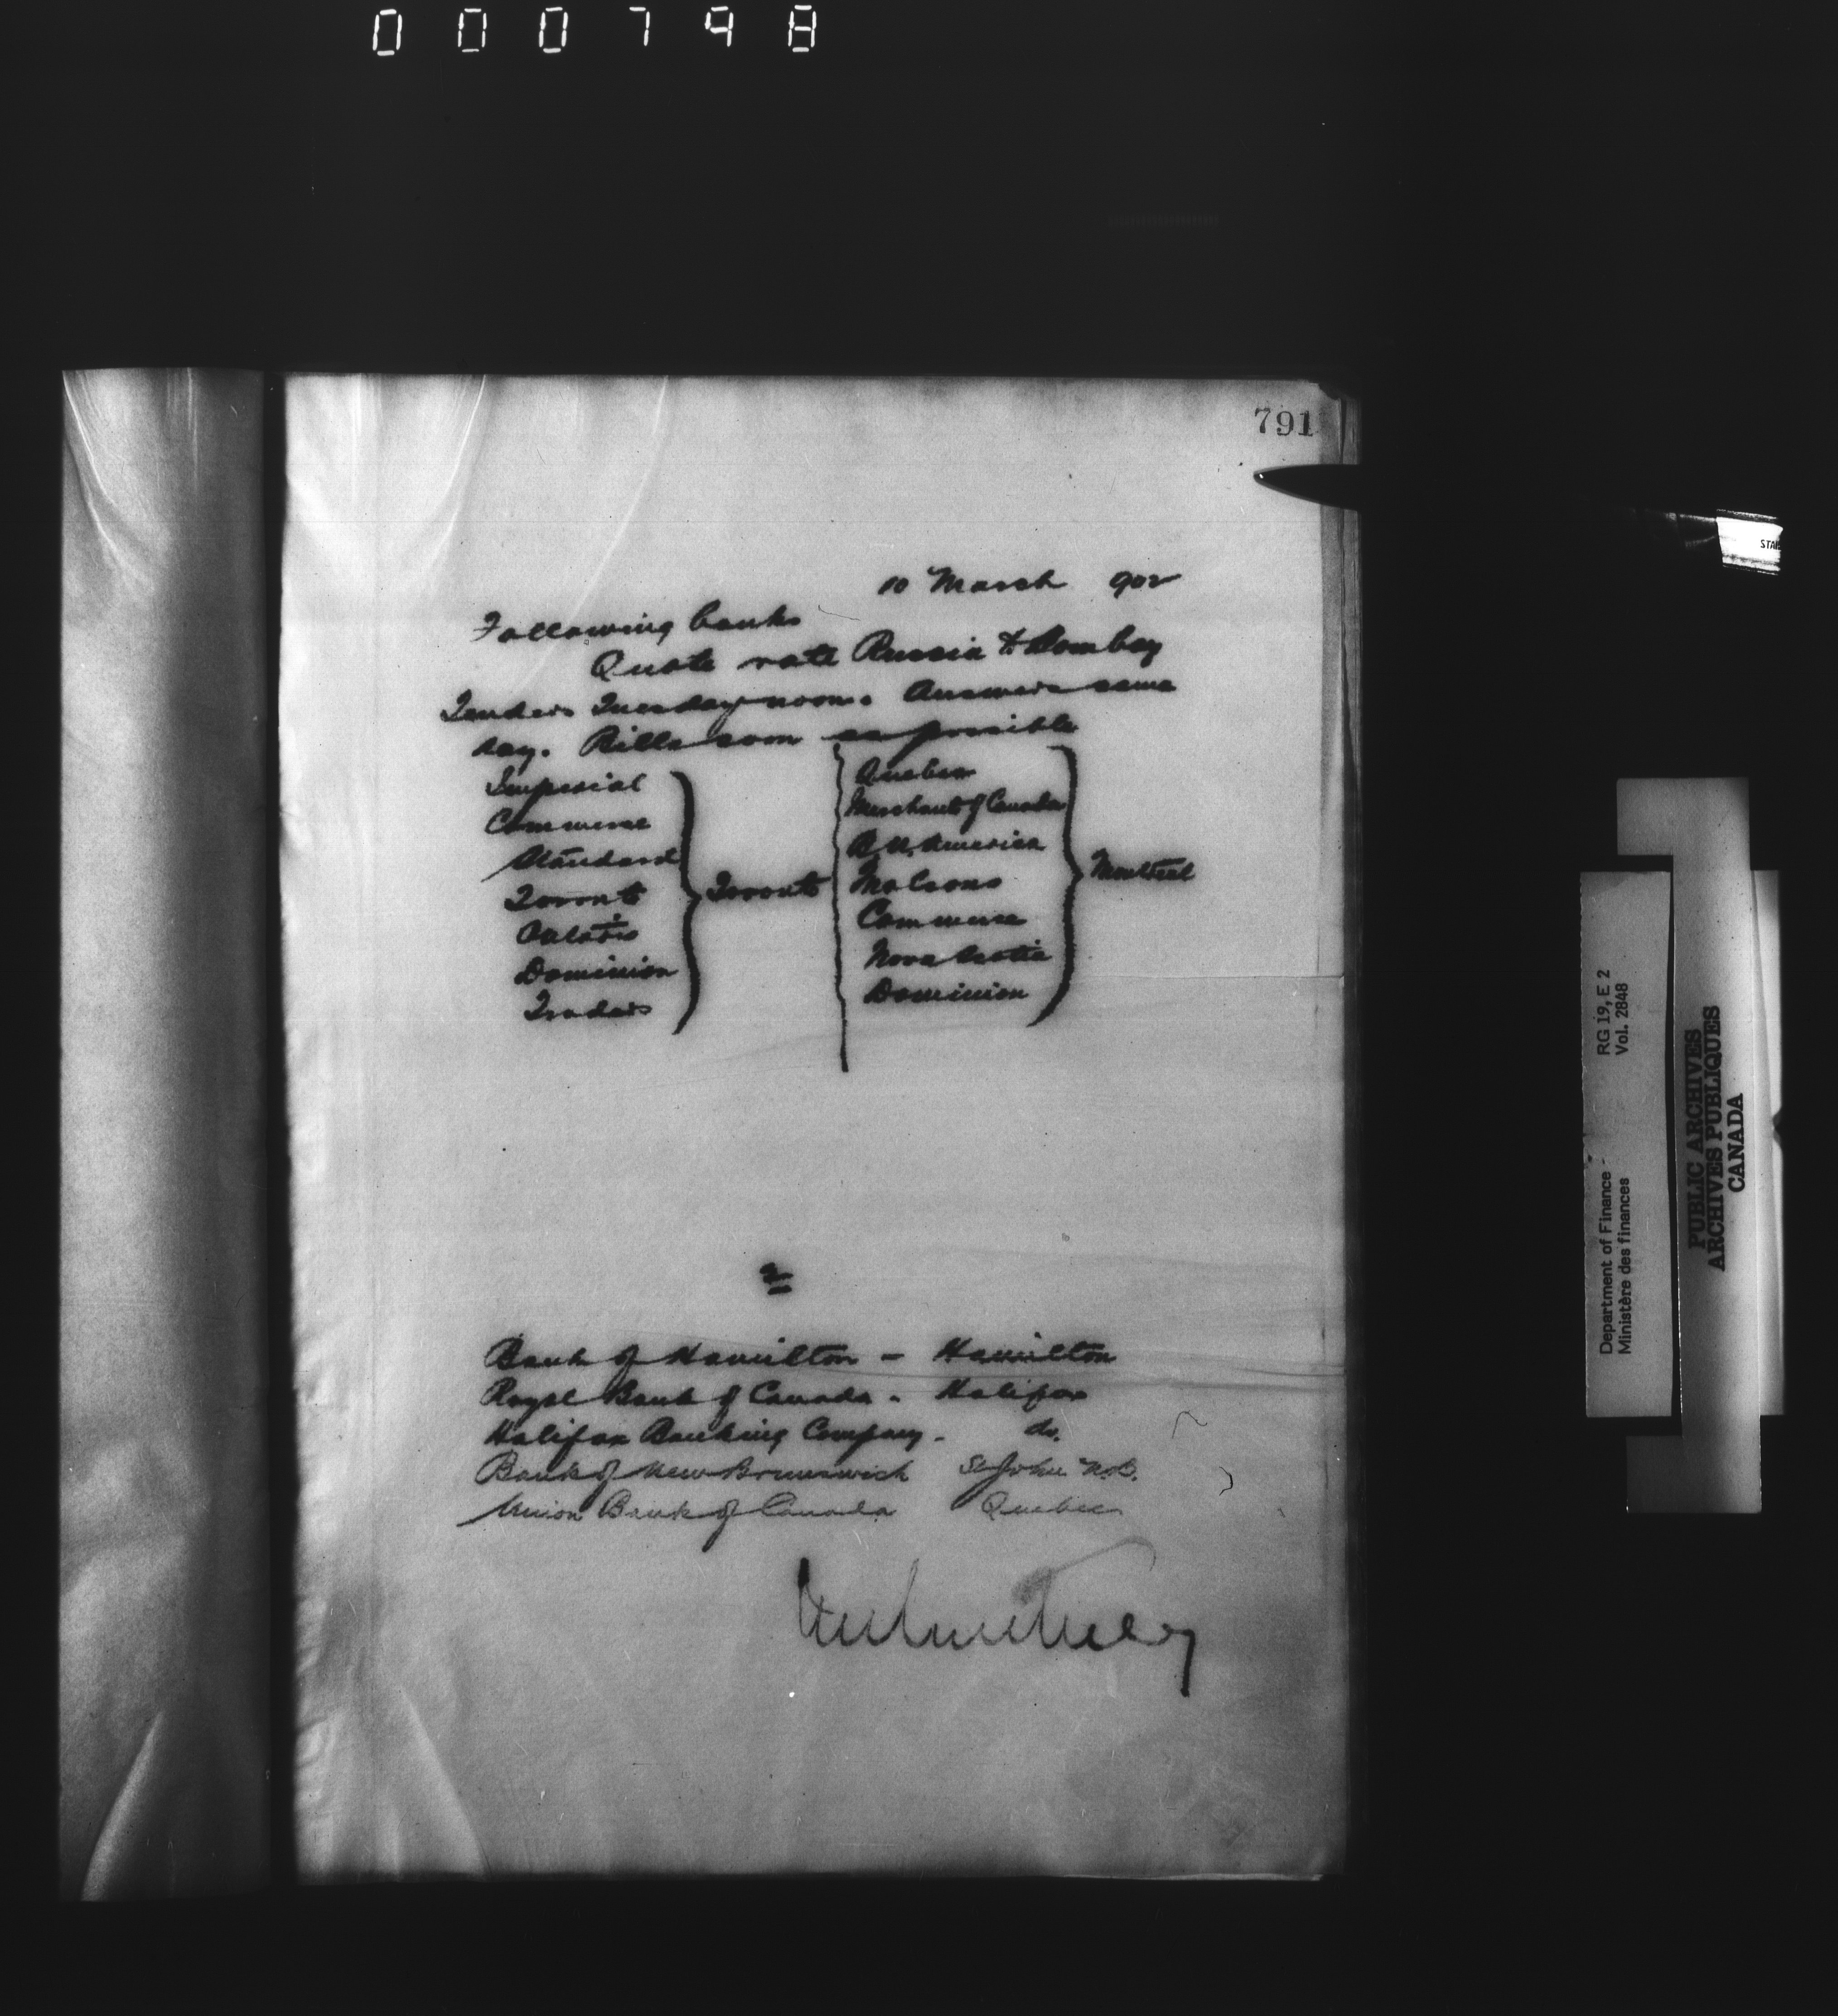 000798
791
10 March 902
Following banks
Quote rate Russia & Bombay
Tenders Tuesday noon. Answers same
day. Bills soon as possible
Imperial
Commerce
Standard
Toronto
Ontario
Dominion
Traders
Toronto
Quebec
Merchants of Canada
B. N. America
Molsons
Commerce
Nova Scotia
Dominion
Montreal
Bank of Hamilton - Hamilton
Royal Bank of Canada - Halifax
Halifax Banking Company - do.
Bank of New Brunswick St John N.B.
Union Bank of Canada Quebec
Department of Finance - RG 19, E 2
Ministère des finances Vol. 2848
PUBLIC ARCHIVES
ARCHIVES PUBLIQUES
CANADA